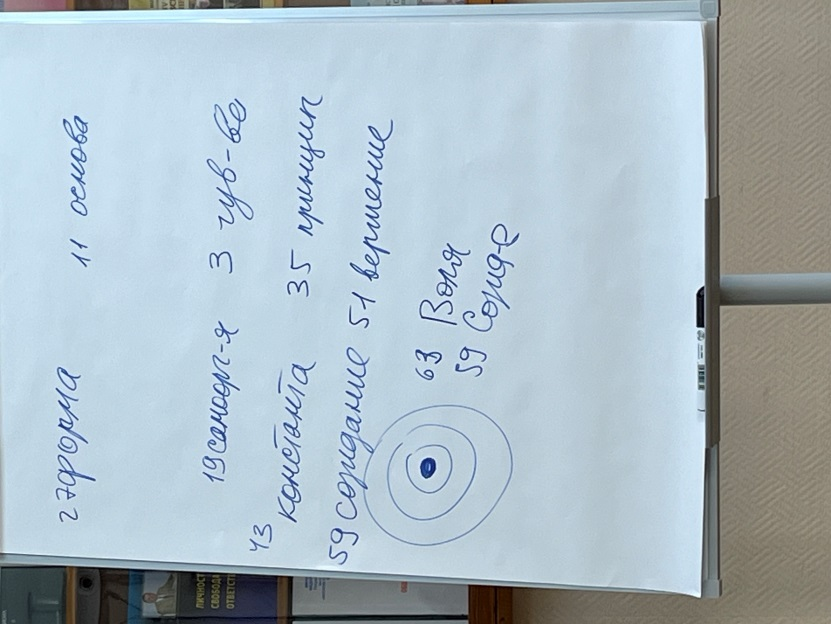 27 форма 11 основа
19 самоорг-я 3 чув-ве
43
константа 35 принцип
59 созидание 51 вершение
63 Воля
59 Созид-е
ЛИЧНОСТ
СВОБОДА
ОТВЕТСТВ